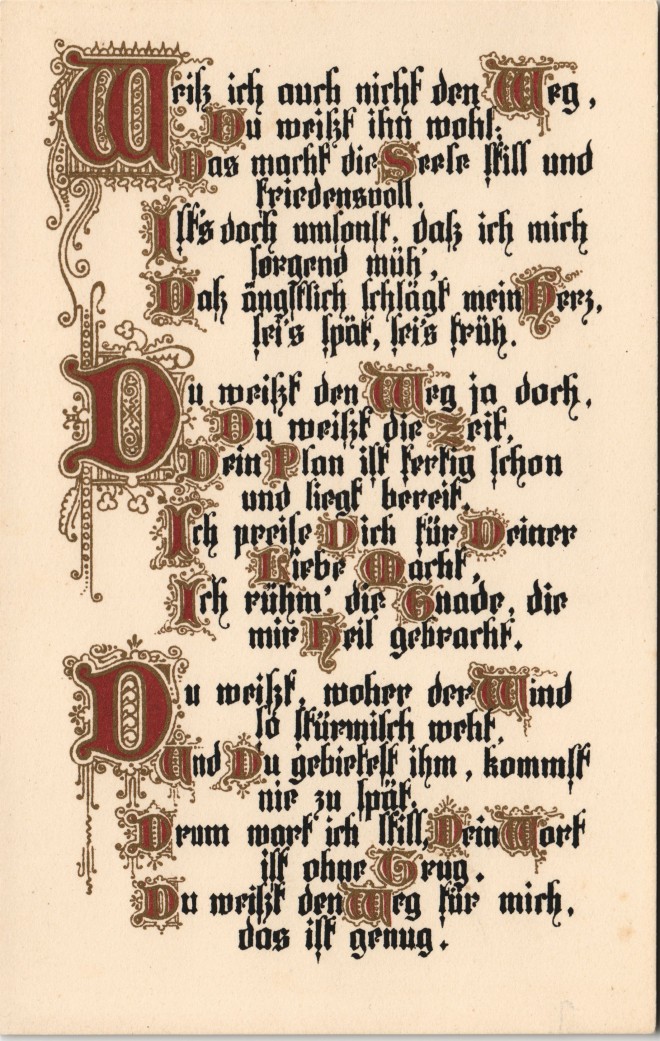 Weiß ich auch nicht den Weg,
Du weißt ihn wohl;
Das macht die Seele still und
friedensvoll.
Ist's doch umsonst, daß ich mich
sorgend müh',
Daß ängstlich schlägt mein Herz,
sei's spät, sei's früh.
Du weißt den Weg ja doch,
Du weißt die Zeit,
Dein Plan ist fertig schon
und liegt bereit.
Ich preise Dich für Deiner
Liebe Macht,
Ich rühm' die Gnade, die
mir Heil gebracht.
Du weißt, woher der Wind
so stürmisch weht,
Und Du gebietest ihm, kommst
nie zu spät.
Drum wart ich still, Dein Wort
ist ohne Trug.
Du weißt den Weg für mich,
das ist genug.